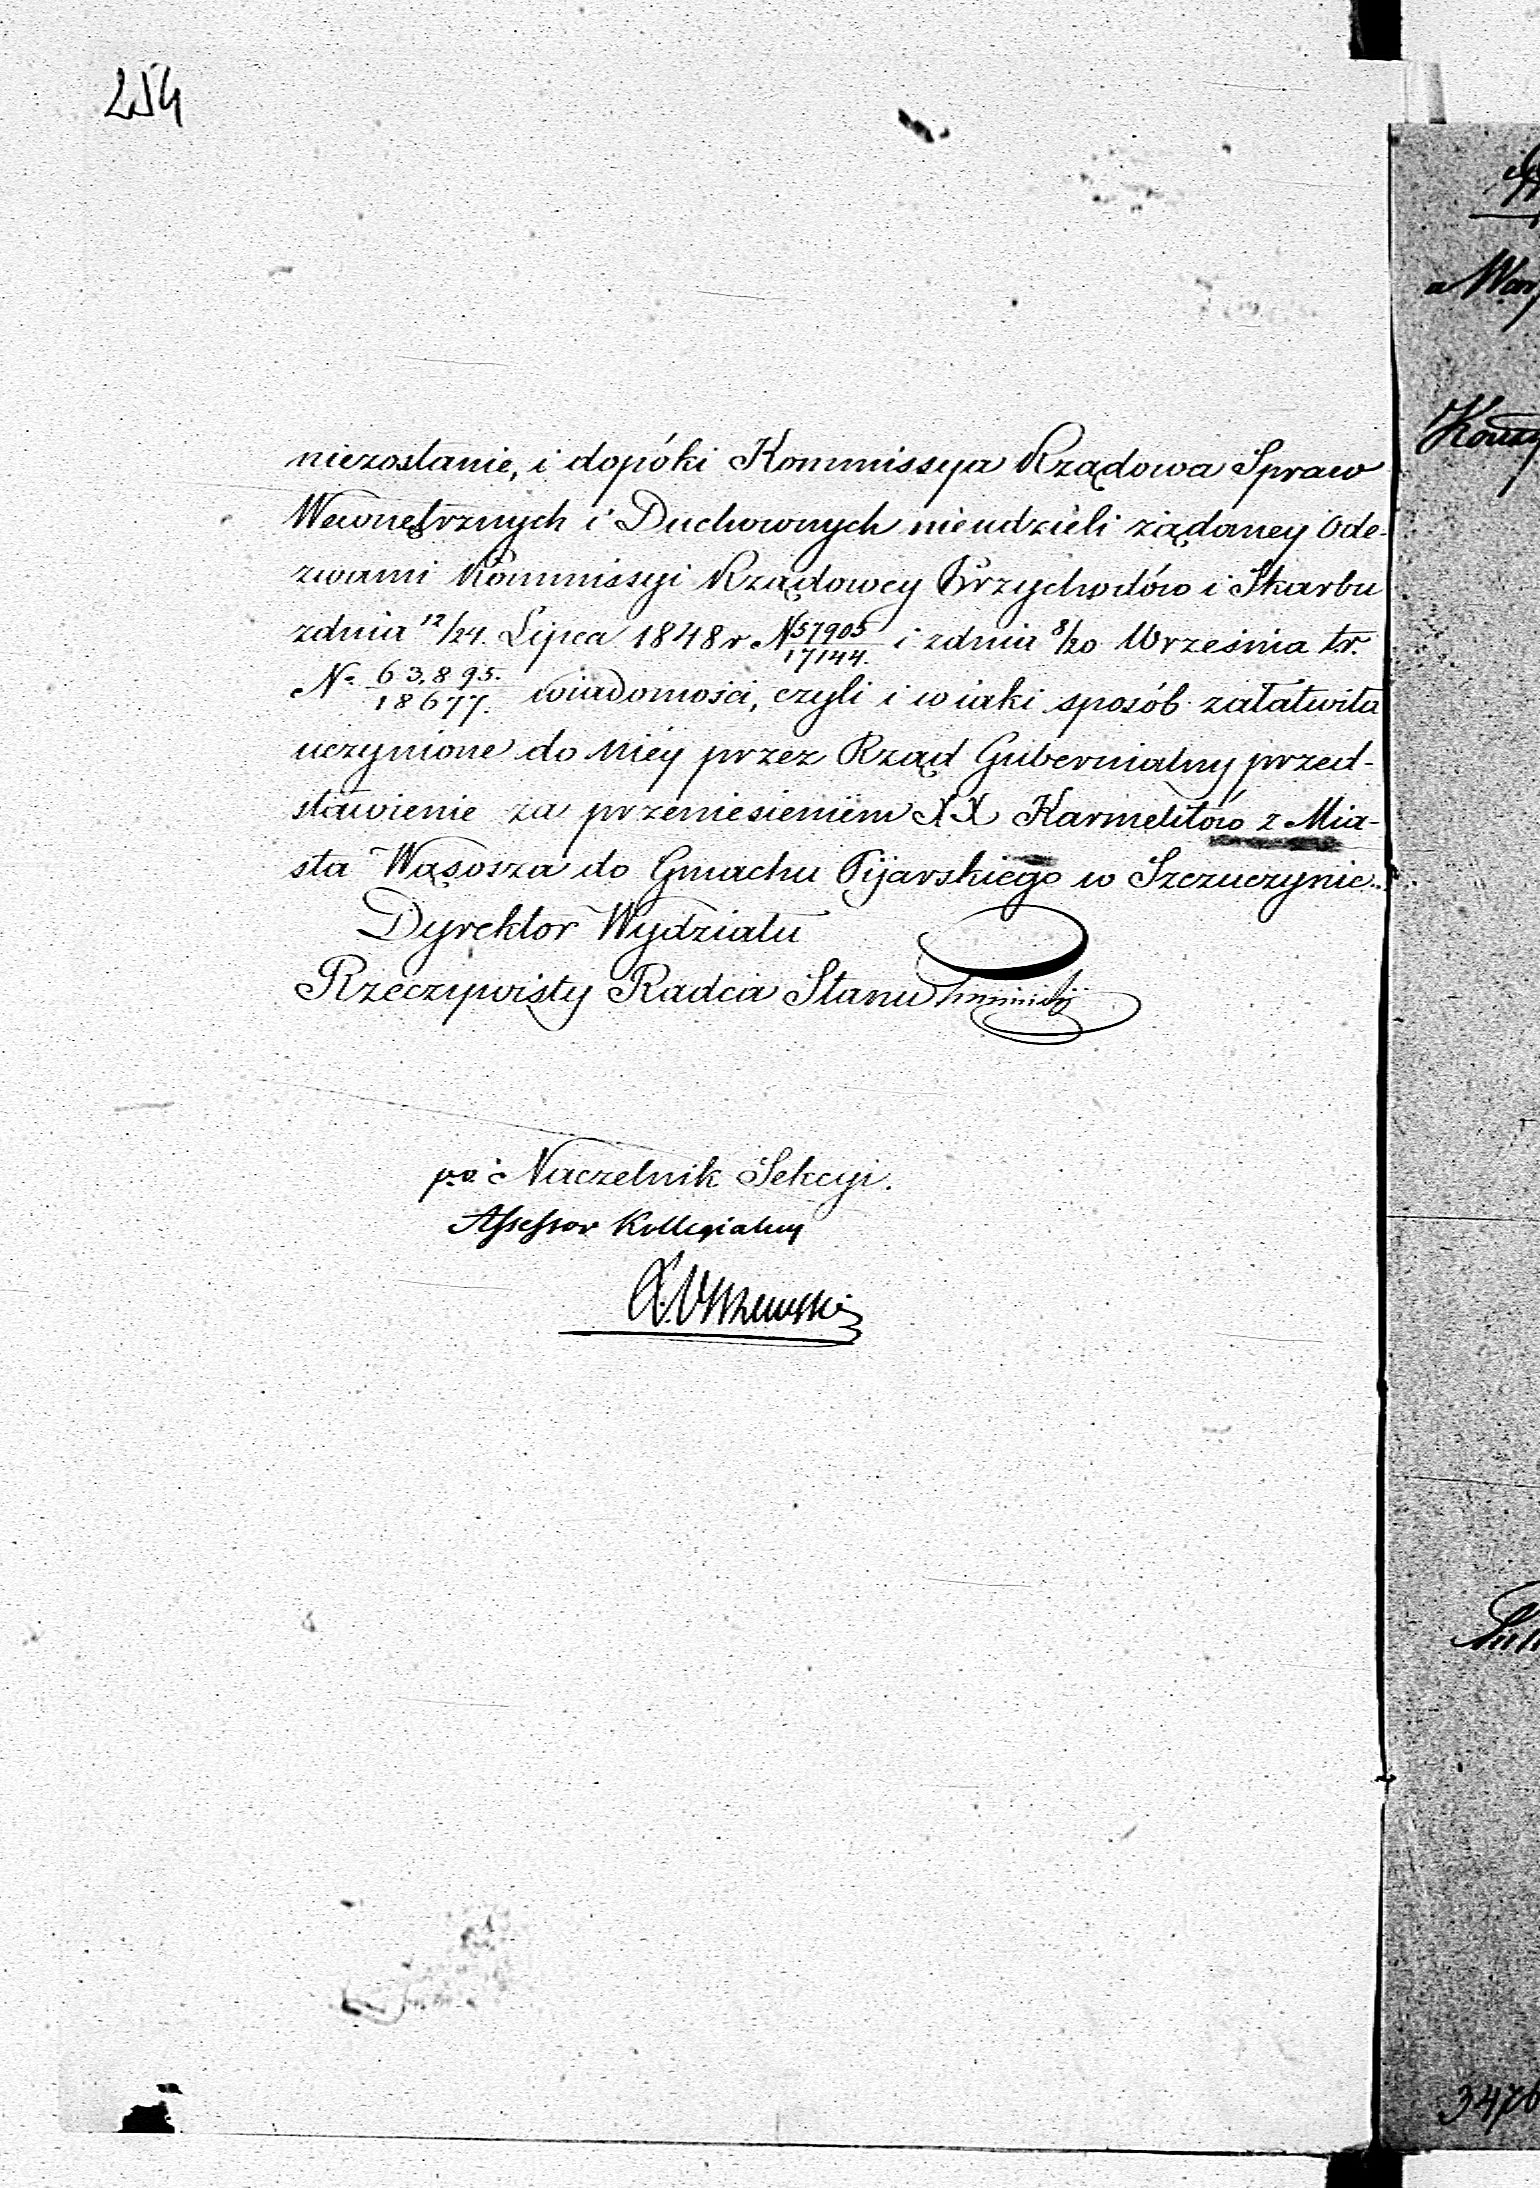 254
niezostanie, i dopóki Kommissya Rządowa Spraw
Wewnętrznych i Duchownych nieudzieli żądaney Ode-
zwami Kommissyi Rządowey Przychodów i Skarbu
zdnia 12/24. Lipca 1848 r N 57905/17144. i zdnia 8/20 Września t.r.
N. 63,895./18677. wiadomości, czyli i w iaki sposób załatwiła
uczynione do Niéy przez Rząd Gubernialny przed-
stawienie za przeniesieniem XX Karmelitów z Mia-
sta Wąsosza do Gmachu Pijarskiego w Szczuczynie.
Dyrektor Wydziału
Rzeczywisty Radca Stanu
p.o. Naczelnik Sekcyi.
Assessor Kollegialny
3476